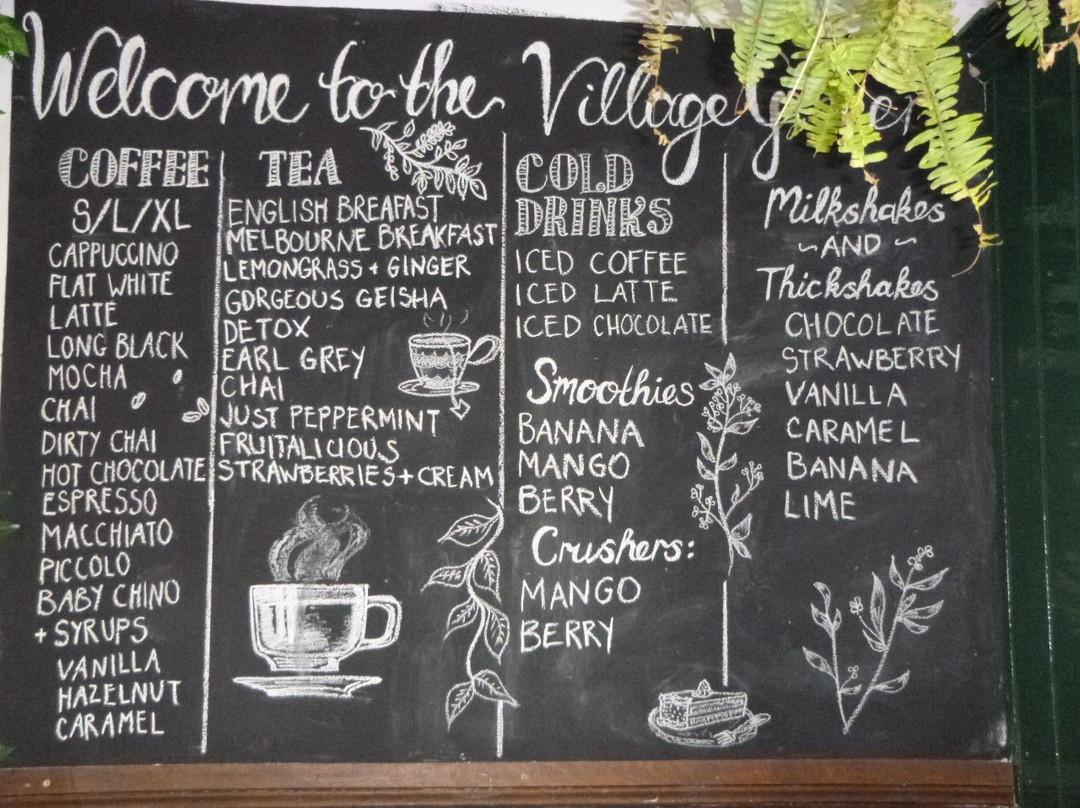 Welcome to the Village
COFFEE
S/L/XL
CAPPUCCINO
FLAT WHITE
LATTE
LONG BLACK
MOCHA
CHAI
DIRTY CHAI
HOT CHOCOLATE
ESPRESSO
MACCHIATO
PICCOLO
BABY CHINO
+ SYRUPS
VANILLA
HAZELNUT
CARAMEL
TEA
ENGLISH BREAFAST
MELBOURNE BREAKFAST
LEMONGRASS + GINGER
GORGEOUS GEISHA
DETOX
EARL GREY
CHAI
JUST PEPPERMINT
FRUITALICIOUS
STRAWBERRIES + CREAM
COLD
DRINKS
ICED COFFEE
ICED LATTE
ICED CHOCOLATE
Smoothies
BANANA
MANGO
BERRY
Crushers:
MANGO
BERRY
Milkshakes
~AND~
Thickshakes
CHOCOLATE
STRAWBERRY
VANILLA
CARAMEL
BANANA
LIME